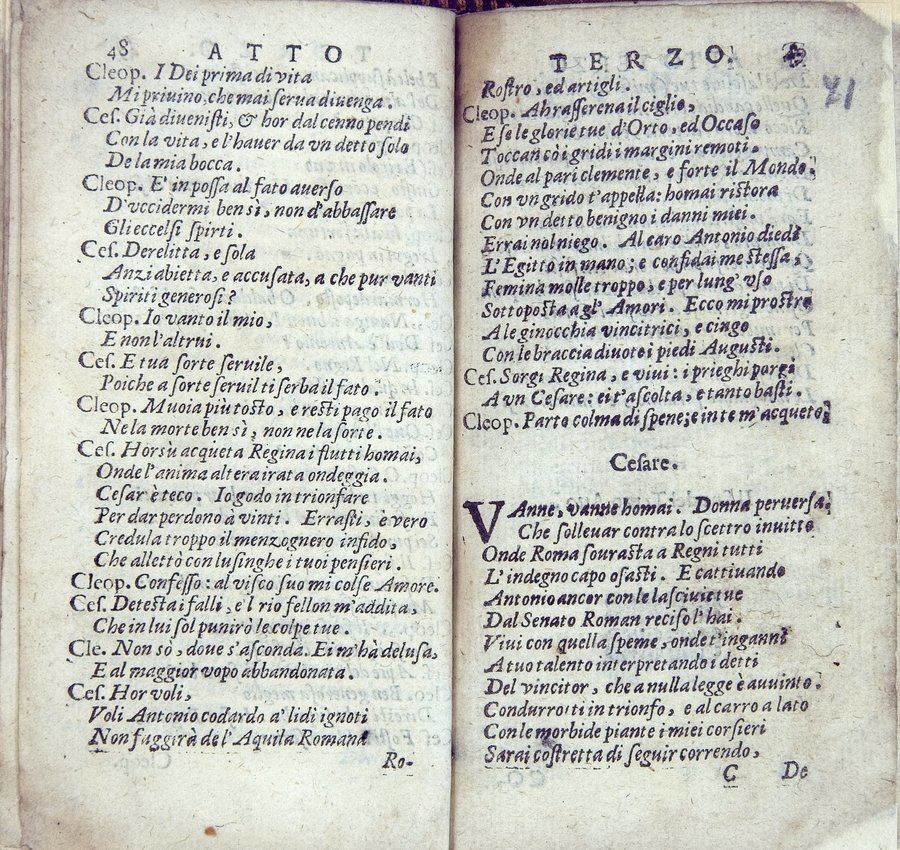 48 ATTO
Cleop. I Dei prima di vita
Mi priuino, che mai serua diuenga.
Ces. Già diuenisti, & hor dal cenno pendi
Con la vita, e l'hauer da vn detto solo
De la mia bocca.
Cleop. E' in possa al fato auerso
D'vccidermi ben sì, non d'abbassare
Gli eccelsi spirti.
Ces. Derelitta, e sola
Anzi abietta, e accusata, a che pur vanti
Spiriti generosi?
Cleop. Io vanto il mio,
E non l'altrui.
Ces. E tua sorte seruile,
Poiche a sorte seruil ti serba il fato.
Cleop. Muoia più tosto, e resti pago il fato
Ne la morte ben sì, non ne la sorte.
Ces. Horsù acqueta Regina i flutti homai,
Onde l'anima altera irata ondeggia.
Cesar è teco. Io godo in trionfare
Per dar perdono à vinti. Errasti, è vero
Credula troppo il menzognero infido,
Che allettò con lusinghe i tuoi pensieri.
Cleop. Confesso: al visco suo mi colse Amore.
Ces. Detesta i falli, e'l rio fellon m'addita,
Che in lui sol punirò le colpe tue.
Cle. Non sò, doue s'asconda. Ei m'hà delusa,
E al maggior vopo abbandonata.
Ces. Hor voli,
Voli Antonio codardo a' lidi ignoti
Non fuggirà de l'Aquila Romana
Ro-
TERZO.
41
Rostro, ed artigli.
Cleop. Ah rasserena il ciglio,
E se le glorie tue d'Orto, ed Occaso
Toccan cò i gridi i margini remoti.
Onde al pari clemente, e forte il Mondo
Con vn grido t'appella: homai ristora
Con vn detto benigno i danni miei.
Errai nol niego. Al caro Antonio diedi
L'Egitto in mano; e confidai me stessa,
Femina molle troppo, e per lung' vso
Sottoposta agl' Amori. Ecco mi prostro
A le ginocchia vincitrici, e cingo
Con le braccia diuote i piedi Augusti.
Ces. Sorgi Regina, e viui: i prieghi porgi
A vn Cesare: ei t'ascolta, e tanto basti.
Cleop. Parto colma di spene; e in te m'acqueto.
Cesare.
VAnne, vanne homai. Donna peruersa
Che solleuar contra lo scettro inuitto
Onde Roma sourasta a Regni tutti
L'indegno capo osasti. E cattiuando
Antonio ancor con le lasciuie tue
Dal Senato Roman reciso l'hai.
Viui con quella speme, onde t'inganni
A tuo talento interpretando i detti
Del vincitor, che a nulla legge è auuinto.
Condurrotti in trionfo, e al carro a lato
Con le morbide piante i miei corsieri
Sarai costretta di seguir correndo,
C De